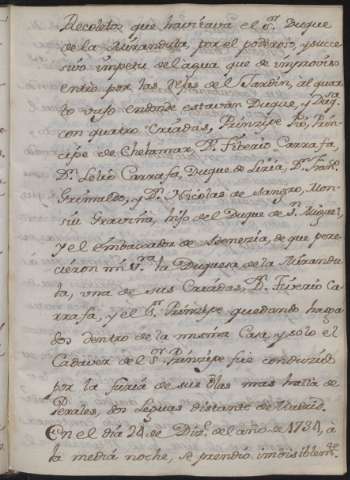 Recoletos que havitava el S.r Duque
de la Mirandula, por el poderoso, y succe
sivo impetu del agua que de improviso
entrò por las Rejas de el Jardin, al quar
to vajo endonde estavan Duque, y Duq.
con quatro Criadas, Principe Pio, Prin
cipe de Chelamar, D.n Tiverio Carrafa,
D.n Lelio Carrafa, Duque de Liria, D.n
Grimaldo, y D.n Nicolas de Sangro, Mon
siu Gravina, hijo del Duque de S.n Miguel,
y el Embaxador de Venezia, de que pere
cieron mi S.ra la Duquesa de la Mirandu
la, una de sus Criadas, D.n Tiverio Ca
rrafa, y el S.r Principe quedando haoga
dos dentro de la misma Casa, y solo el
Cadaver del S.r Principe fue conducido
por la furia de sus olas mas halla de
Perales, dos Leguas distante de Madrid.
En el dia 24 de Diz.e del año de 1734, à
la media noche, se prendiò